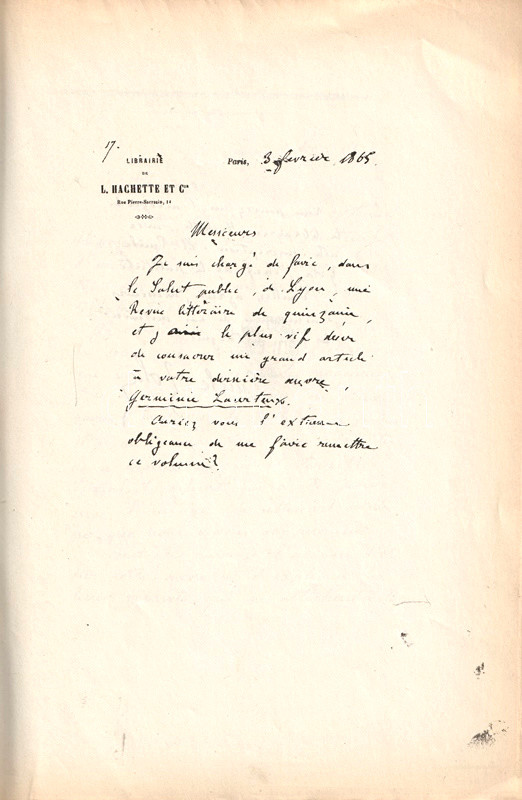 17.
LIBRAIRIE
DE
L. HACHETTE ET Cie
Rue Pierre-Sarrazin, 14
Paris, 3 février 1865.
Messieurs
Je suis chargé de faire, dans
le Salut public, de Lyon, une
Revue littéraire de quinzaine,
et j' le plus vif désir
de consacrer un grand article
à votre dernière œuvre,
Germinie Lacerteux.
Auriez vous l'extrême
obligeance de me faire remettre
ce volume?